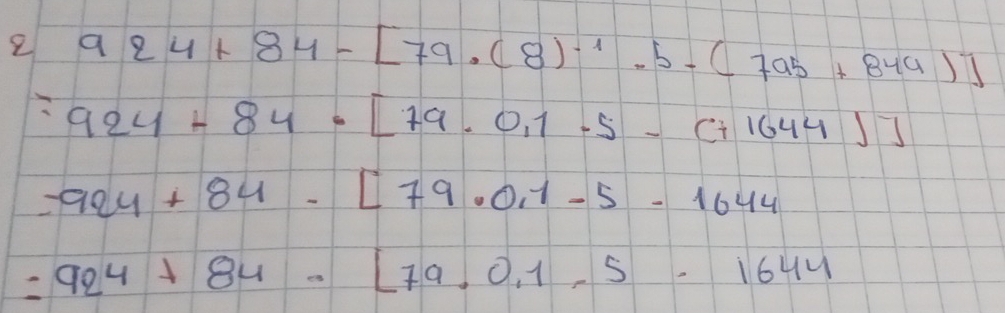 2 924 + 84 - [79 . (8)⁻¹ . 5 - (795 + 849)]
= 924 + 84 - [79 . 0,1 . 5 - (+ 1644)]
= 924 + 84 - [79 . 0,1 - 5 - 1644
= 924 + 84 - [79 . 0,1 - 5 - 1644